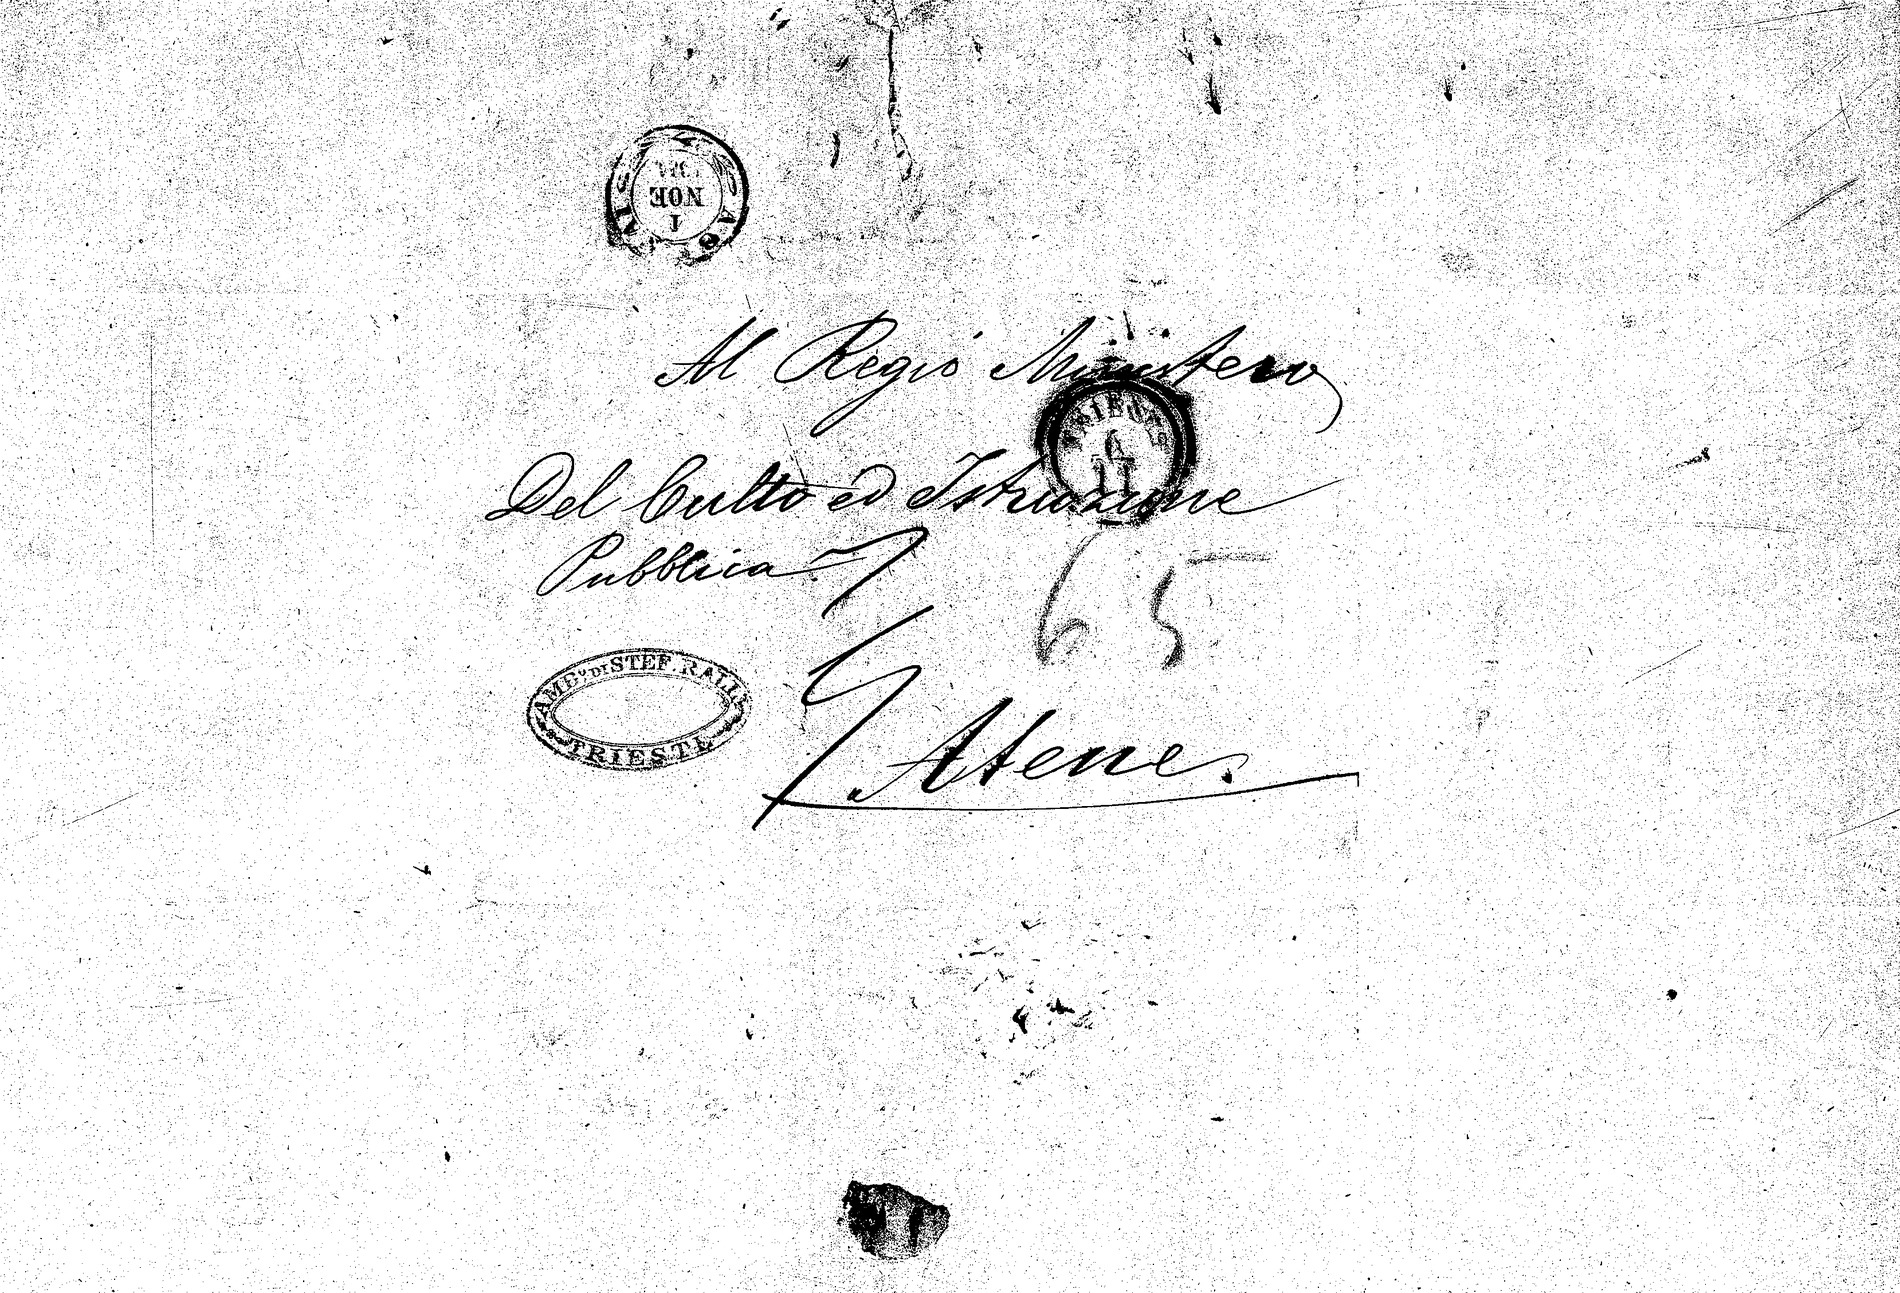 1
NOE
Al Regio Ministero
TRIEST
6
11
Del Culto ed Istruzione
Pubblica
65
DI STEF. RALLI
TRIESTE
Atene.